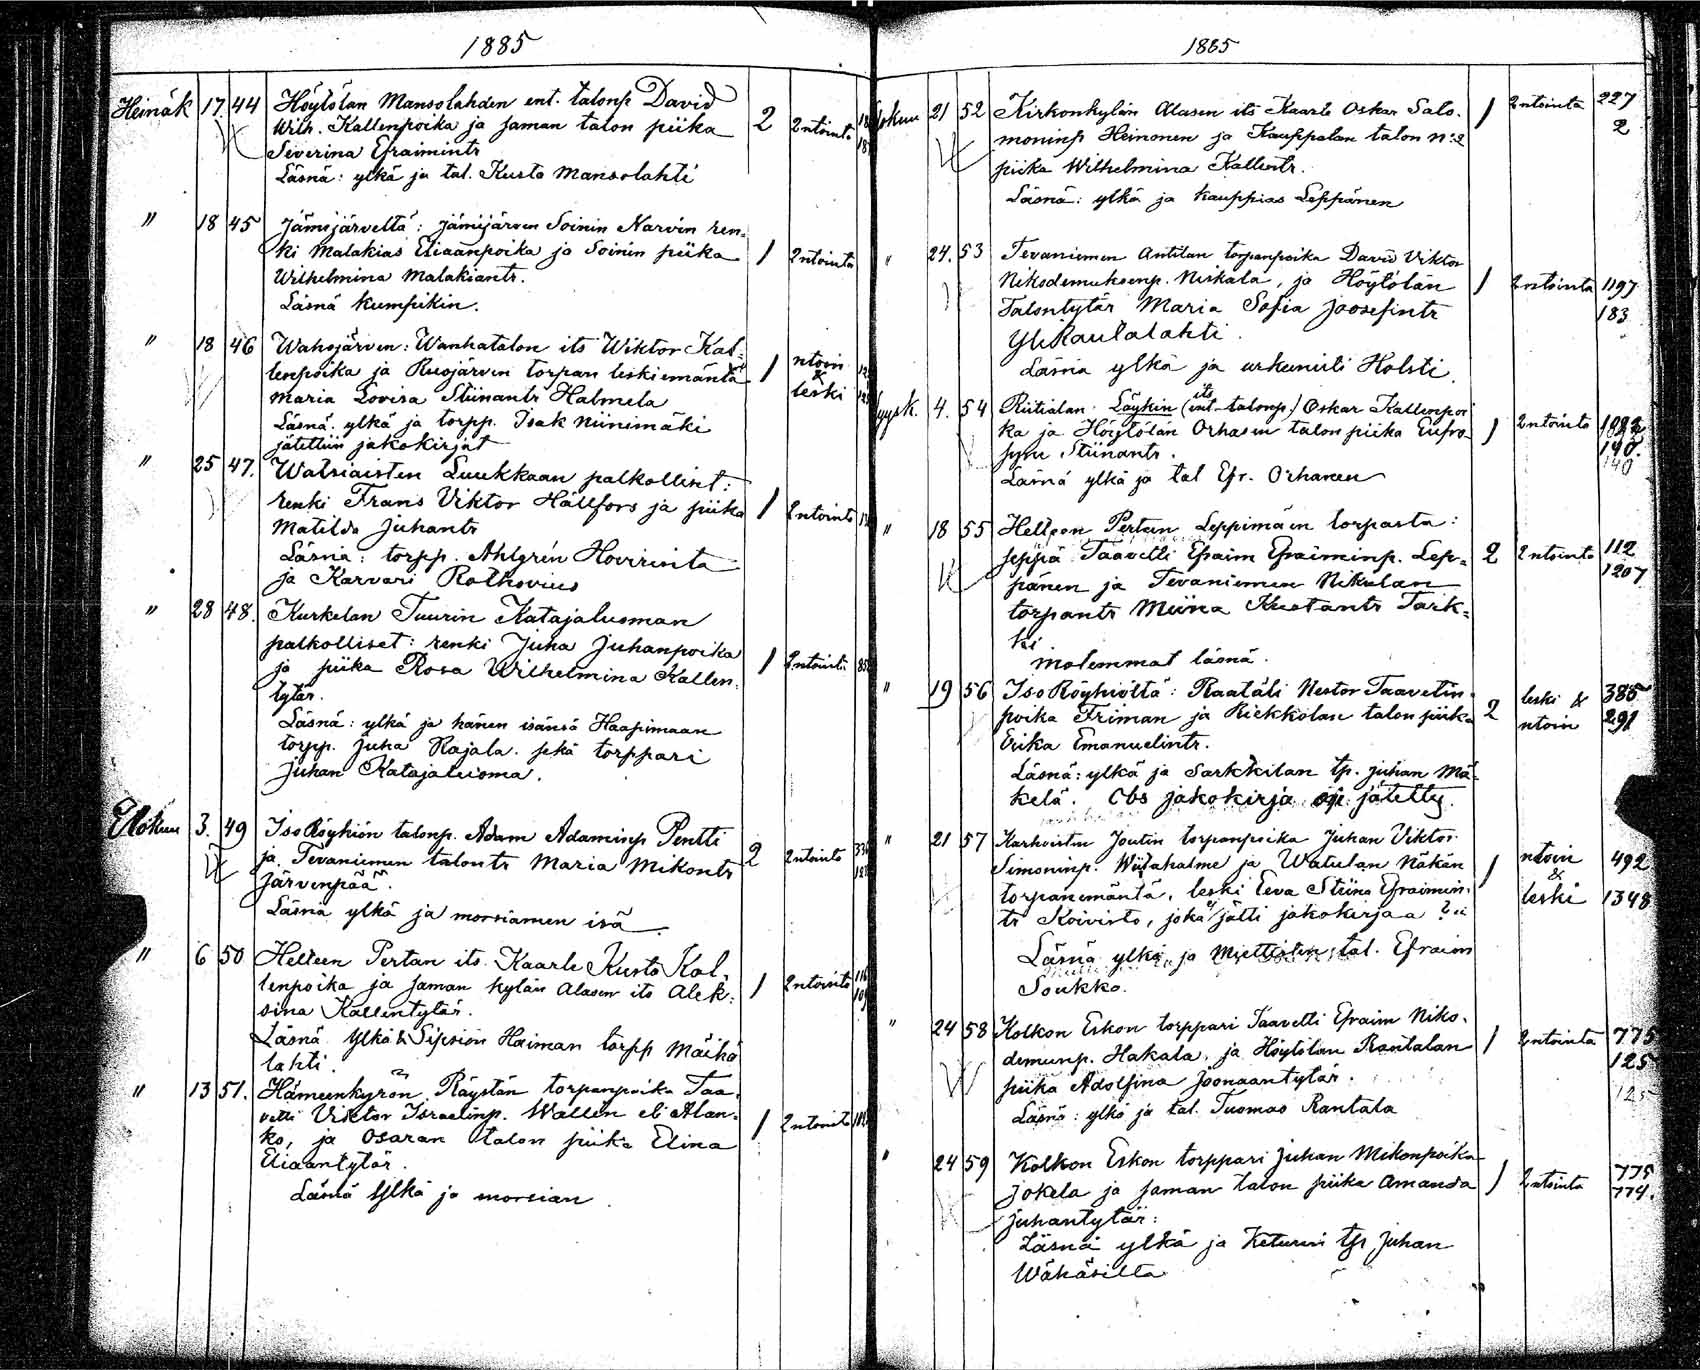 1885
Heinäk 17. 44 Höytölän Mansolahden ent. talonp David
Wilh. Kallenpoika ja saman talon piika 2 2 ntointa
Severina Efraimintr
Läsnä: ylkä ja tal. Kusto Mansolahti
" 18 45 Jämijärveltä: Jämijärven Soinin Narvin ren-
ki Malakias Eliaanpoika ja Soinin piika 1 2 ntointa
Wilhelmina Malakiantr.
Läsnä kumpikin.
" 18 46 Wahojärven: Wanhatalon its Wiktor Kal-
lenpoika ja Ruojärven torpan leskiemäntä 1 ntoin & leski
Maria Lovisa Stiinantr Halmela
Läsnä. ylkä ja torpp. Isak Niinimäki
jätettiin jakokirjat
" 25 47. Watsiaisten Luukkaan palkolliset:
renki Frans Viktor Hällfors ja piika 1 2 ntointa
Matilda Juhantr
Läsnä: torpp. Ahlgrén Hovirinta
ja Karvari Rothovius
" 28 48. Kurkelan Tuurin Katajalusman
palkolliset: renki Juha Juhanpoika
ja piika Rosa Wilhelmina Kallen- 1 2 ntointa 85
tytär.
Läsnä: ylkä ja hänen isänsä Haapimaan
torpp. Juha Rajala. sekä torppari
Juhan Katajaluoma.
Elokuu 3. 49 Iso Röyhiön talonp. Adam Adaminp Pentti
ja Tevaniemen talontr Maria Mikontr 2 2 ntointa
Järvenpää.
Läsnä ylkä ja morsiamen isä
" 6 50 Helteen Pertan its. Kaarle Kusto Kal-
lenpoika ja saman kylän Alasen its Alek- 1 2 ntointa
sina Kallentytär.
Läsnä Ylkä & Sipsiön Haiman torpp Mäihä
lahti.
" 13 51. Hämeenkyrön Räystän torpanpoika Taa-
vetti Viktor Israelinp. Wallen eli Alan- 1 2 ntointa
ko, ja Osaran talon piika Elina
Eliaantytär.
Läsnä Ylkä ja morsian
1885
21 52 Kirkonkylän Alasen its Kaarle Oskar Salo- 1 2 ntointa 227
moninp Heinonen ja Kauppalan talon n:o 2 2
piika Wilhelmina Kallentr.
Läsnä: ylkä ja kauppias Leppänen
" 24. 53 Tevaniemen Anttilan torpanpoika David Viktor
Nikodemuksenp. Niskala, ja Höytölän 1 2 ntointa 1197
Talontytär Maria Sofia Joosefintr 183
Yli Kaulalahti.
Läsnä ylkä ja urkuniisti Holsti.
Syysk. 4. 54 Riitialan Löykin (ent. talonp.) its Oskar Kallenpoi
ka ja Höytölän Orhasen talon piika Eufro- 1 2 ntointa 1092
syne Stiinantr. 140.
Läsnä ylkä ja tal Efr. Orhanen 140
" 18 55 Helteen Pertun Leppimäen torpasta:
seppä Taavetti Efraim Efraiminp. Lep- 2 2 ntointa 112
pänen ja Tevaniemen Nikulan 1207
torpantr Miina Kustantr Tark-
ki
molemmat läsnä.
" 19 56 Iso Röyhiöltä: Raatäli Nestor Taavetin- leski & 385
poika Friman ja Riekkolan talon piika 2 ntoin 291
Erika Emanuelintr.
Läsnä: ylkä ja Sarkkilan tp. Juhan Mä-
kelä. Obs jakokirja oji jätetty.
" 21 57 Karhoisten Joutin torpanpoika Juhan Viktor
Simoninp. Wiitahalme ja Watulan Näkän 1 ntoin 492
torpanemäntä, leski Eeva Stiina Efraimin- & leski 1348
tr Koivisto, joka ei jätti jakokirjaa
Läsnä ylkä ja Miettisten tal. Efraim
Soukko.
" 24 58 Kolkon Eskon torppari Taavetti Efraim Niko-
demunp. Hakala, ja Höytölän Rantalan 1 2 ntointa 775
piika Adolfina Joonaantytär. 125
Läsnä: ylkä ja tal. Tuomas Rantala 125
" 24 59 Kolkon Eskon torppari Juhan Mikonpoika
Jokela ja saman talon piika Amanda 1 2 ntointa 775
Juhantytär: 774.
Läsnä ylkä ja Keturin tp. Juhan
Wähäsilta